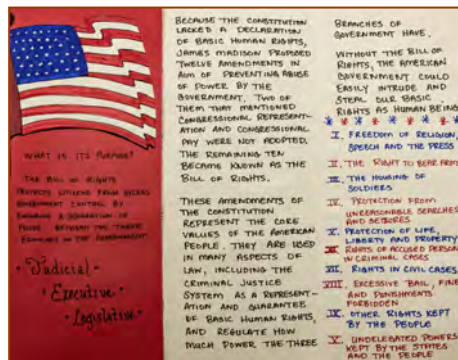 WHAT IS ITS PURPOSE?
THE BILL OF RIGHTS
PROTECTS CITIZENS FROM EXCESS
GOVERNMENT CONTROL BY
ENSURING A SEPARATION OF
POWER BETWEEN THE THREE
BRANCHES IN THE GOVERNMENT.
• Judicial •
• Executive •
• Legislative •
BECAUSE THE CONSTITUTION
LACKED A DECLARATION
OF BASIC HUMAN RIGHTS,
JAMES MADISON PROPOSED
TWELVE AMENDMENTS IN
AIM OF PREVENTING ABUSE
OF POWER BY THE
GOVERNMENT. TWO OF
THEM THAT MENTIONED
CONGRESSIONAL REPRESENT-
ATION AND CONGRESSIONAL
PAY WERE NOT ADOPTED.
THE REMAINING TEN
BECAME KNOWN AS THE
BILL OF RIGHTS.
THESE AMENDMENTS OF
THE CONSTITUTION
REPRESENT THE CORE
VALUES OF THE AMERICAN
PEOPLE. THEY ARE USED
IN MANY ASPECTS OF
LAW, INCLUDING THE
CRIMINAL JUSTICE
SYSTEM AS A REPRESENT-
ATION AND GUARANTEE
OF BASIC HUMAN RIGHTS,
AND REGULATE HOW
MUCH POWER THE THREE
BRANCHES OF
GOVERNMENT HAVE.
WITHOUT THE BILL OF
RIGHTS, THE AMERICAN
GOVERNMENT COULD
EASILY INTRUDE AND
STEAL OUR BASIC
RIGHTS AS HUMAN BEING
I. FREEDOM OF RELIGION,
SPEECH AND THE PRESS
II. THE RIGHT TO BEAR ARMS
III. THE HOUSING OF
SOLDIERS
IV. PROTECTION FROM
UNREASONABLE SEARCHES
AND SEIZURES
V. PROTECTION OF LIFE,
LIBERTY AND PROPERTY
VI. RIGHTS OF ACCUSED PERSON
IN CRIMINAL CASES
VII. RIGHTS IN CIVIL CASES
VIII. EXCESSIVE BAIL, FINE
AND PUNISHMENTS
FORBIDDEN
IX. OTHER RIGHTS KEPT
BY THE PEOPLE
X. UNDELEGATED POWERS
KEPT BY THE STATES
AND THE PEOPLE